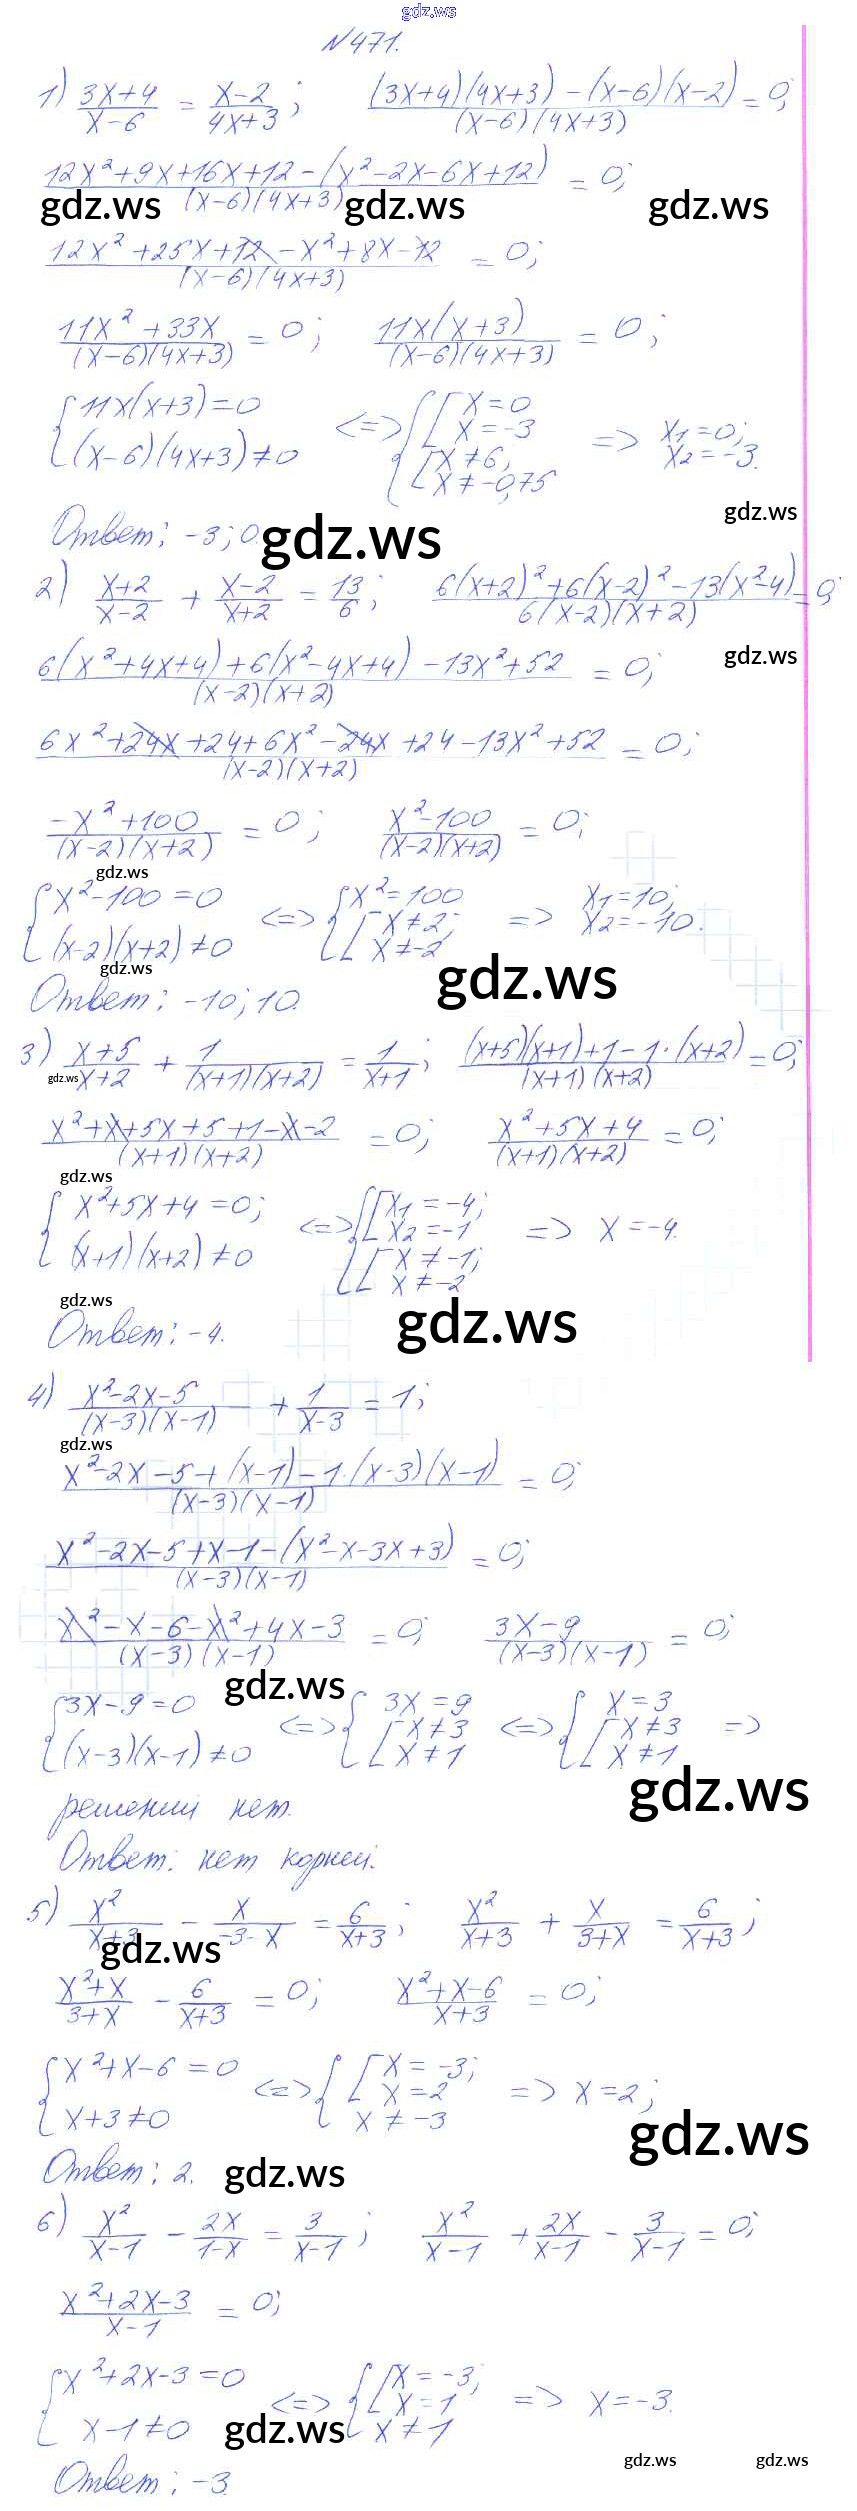 gdz.ws
N 471.
1) (3x+4)/(x-6) = (x-2)/(4x+3); ((3x+4)(4x+3)-(x-6)(x-2))/((x-6)(4x+3)) = 0;
(12x²+9x+16x+12-(x²-2x-6x+12))/((x-6)(4x+3)) = 0;
gdz.ws gdz.ws gdz.ws
(12x²+25x+12-x²+8x-12)/((x-6)(4x+3)) = 0;
(11x²+33x)/((x-6)(4x+3)) = 0; (11x(x+3))/((x-6)(4x+3)) = 0;
{11x(x+3)=0 <=> {[x=0 x=-3 => x₁=0;
{(x-6)(4x+3)≠0 {[x≠6, x≠-0,75 x₂=-3.
gdz.ws
Ответ: -3; 0.
gdz.ws
2) (x+2)/(x-2) + (x-2)/(x+2) = 13/6; (6(x+2)²+6(x-2)²-13(x²-4))/(6(x-2)(x+2)) = 0;
gdz.ws
(6(x²+4x+4)+6(x²-4x+4)-13x²+52)/((x-2)(x+2)) = 0;
(6x²+24x+24+6x²-24x+24-13x²+52)/((x-2)(x+2)) = 0;
(-x²+100)/((x-2)(x+2)) = 0; (x²-100)/((x-2)(x+2)) = 0;
gdz.ws
{x²-100=0 <=> {x²=100 => x₁=10;
{(x-2)(x+2)≠0 {[x≠2; x≠-2 x₂=-10.
gdz.ws gdz.ws
Ответ: -10; 10.
3) (x+5)/(x+2) + 1/((x+1)(x+2)) = 1/(x+1); ((x+5)(x+1)+1-1·(x+2))/((x+1)(x+2)) = 0;
gdz.ws
(x²+x+5x+5+1-x-2)/((x+1)(x+2)) = 0; (x²+5x+4)/((x+1)(x+2)) = 0;
gdz.ws
{x²+5x+4=0; <=> {[x₁=-4; x₂=-1 => x=-4.
{(x+1)(x+2)≠0 {[x≠-1; x≠-2
gdz.ws gdz.ws
Ответ: -4.
4) (x²-2x-5)/((x-3)(x-1)) + 1/(x-3) = 1;
gdz.ws
(x²-2x-5+(x-1)-1·(x-3)(x-1))/((x-3)(x-1)) = 0;
(x²-2x-5+x-1-(x²-x-3x+3))/((x-3)(x-1)) = 0;
(x²-x-6-x²+4x-3)/((x-3)(x-1)) = 0; (3x-9)/((x-3)(x-1)) = 0;
gdz.ws
{3x-9=0 <=> {3x=9 <=> {x=3 =>
{(x-3)(x-1)≠0 {[x≠3 x≠1 {[x≠3 x≠1
gdz.ws
решений нет.
Ответ: нет корней.
5) x²/(x+3) - x/(-3-x) = 6/(x+3); x²/(x+3) + x/(3+x) = 6/(x+3);
gdz.ws
(x²+x)/(3+x) - 6/(x+3) = 0; (x²+x-6)/(x+3) = 0;
{x²+x-6=0 <=> {[x=-3; x=2 => x=2;
{x+3≠0 {x≠-3
gdz.ws
Ответ: 2.
gdz.ws
6) x²/(x-1) - 2x/(1-x) = 3/(x-1); x²/(x-1) + 2x/(x-1) - 3/(x-1) = 0;
(x²+2x-3)/(x-1) = 0;
{x²+2x-3=0 <=> {[x=-3; x=1 => x=-3.
{x-1≠0 {x≠1
gdz.ws
gdz.ws gdz.ws
Ответ: -3.